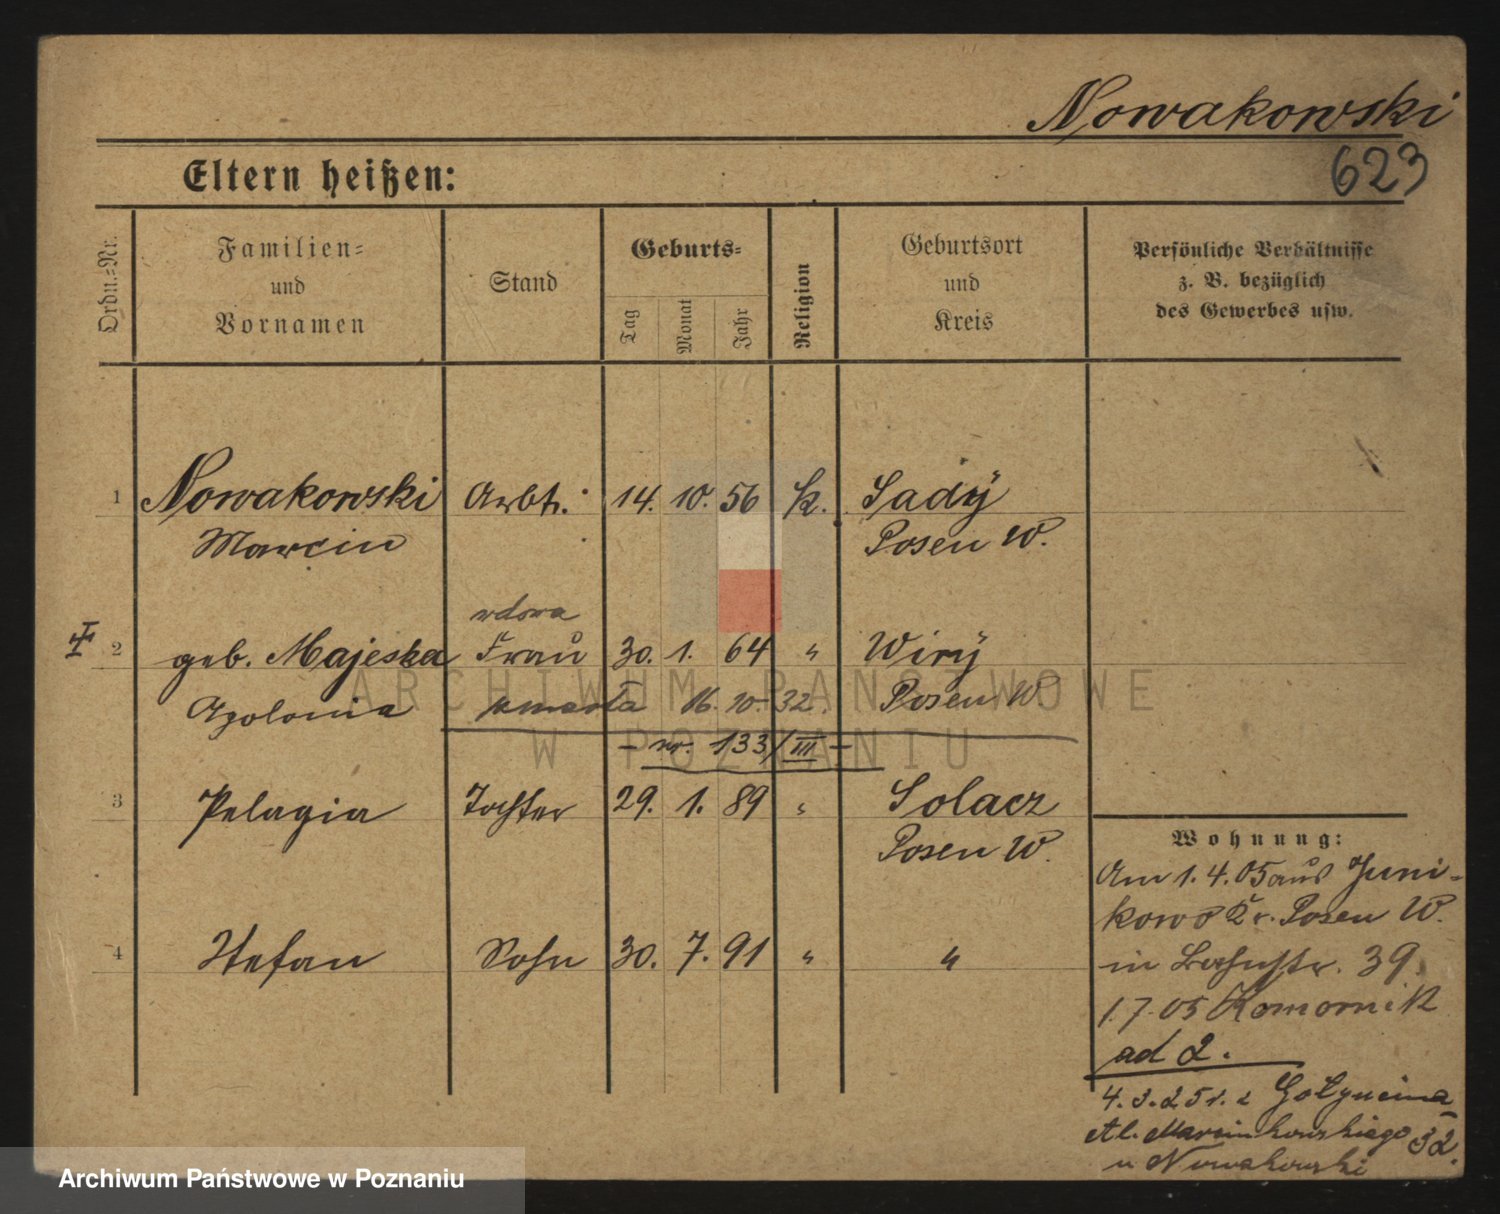 Nowakowski
623
Eltern heißen:
Ordn.-Nr.
Familien-
und
Vornamen
Stand
Geburts-
Tag
Monat
Jahr
Religion
Geburtsort
und
Kreis
Persönliche Verhältnisse
z. B. bezüglich
des Gewerbes usw.
1 Nowakowski Arbtr. 14. 10. 56 k. Sady
Marcin Posen W.
wdowa
2 geb. Majeska Frau 30. 1. 64 " Wiry
Apolonia zmarła 16. 10. 32. Posen W
- nr. 133/III -
3 Pelagia Tochter 29. 1. 89 " Solacz
Posen W.
4 Stefan Sohn 30. 7. 91 " "
Wohnung:
Am 1. 4. 05 aus Juni-
kowo Kr. Posen W.
in Bahnstr. 39.
1. 7. 05 Komornik
ad 2.
4. 3. 25 r. z Golęcina
Al. Marcinkowskiego 32.
u Nowakowski
ARCHIWUM PAŃSTWOWE
W POZNANIU
Archiwum Państwowe w Poznaniu